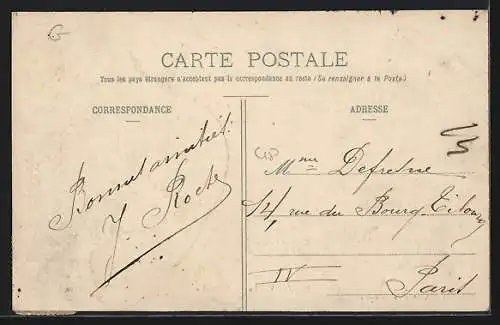 G
CARTE POSTALE
Tous les pays étrangers n'acceptent pas la correspondance au recto (Se renseigner à la Poste)
CORRESPONDANCE
ADRESSE
J. Roche
Mme Defresne
14, rue du Bourg-Tibourg
IV
Paris